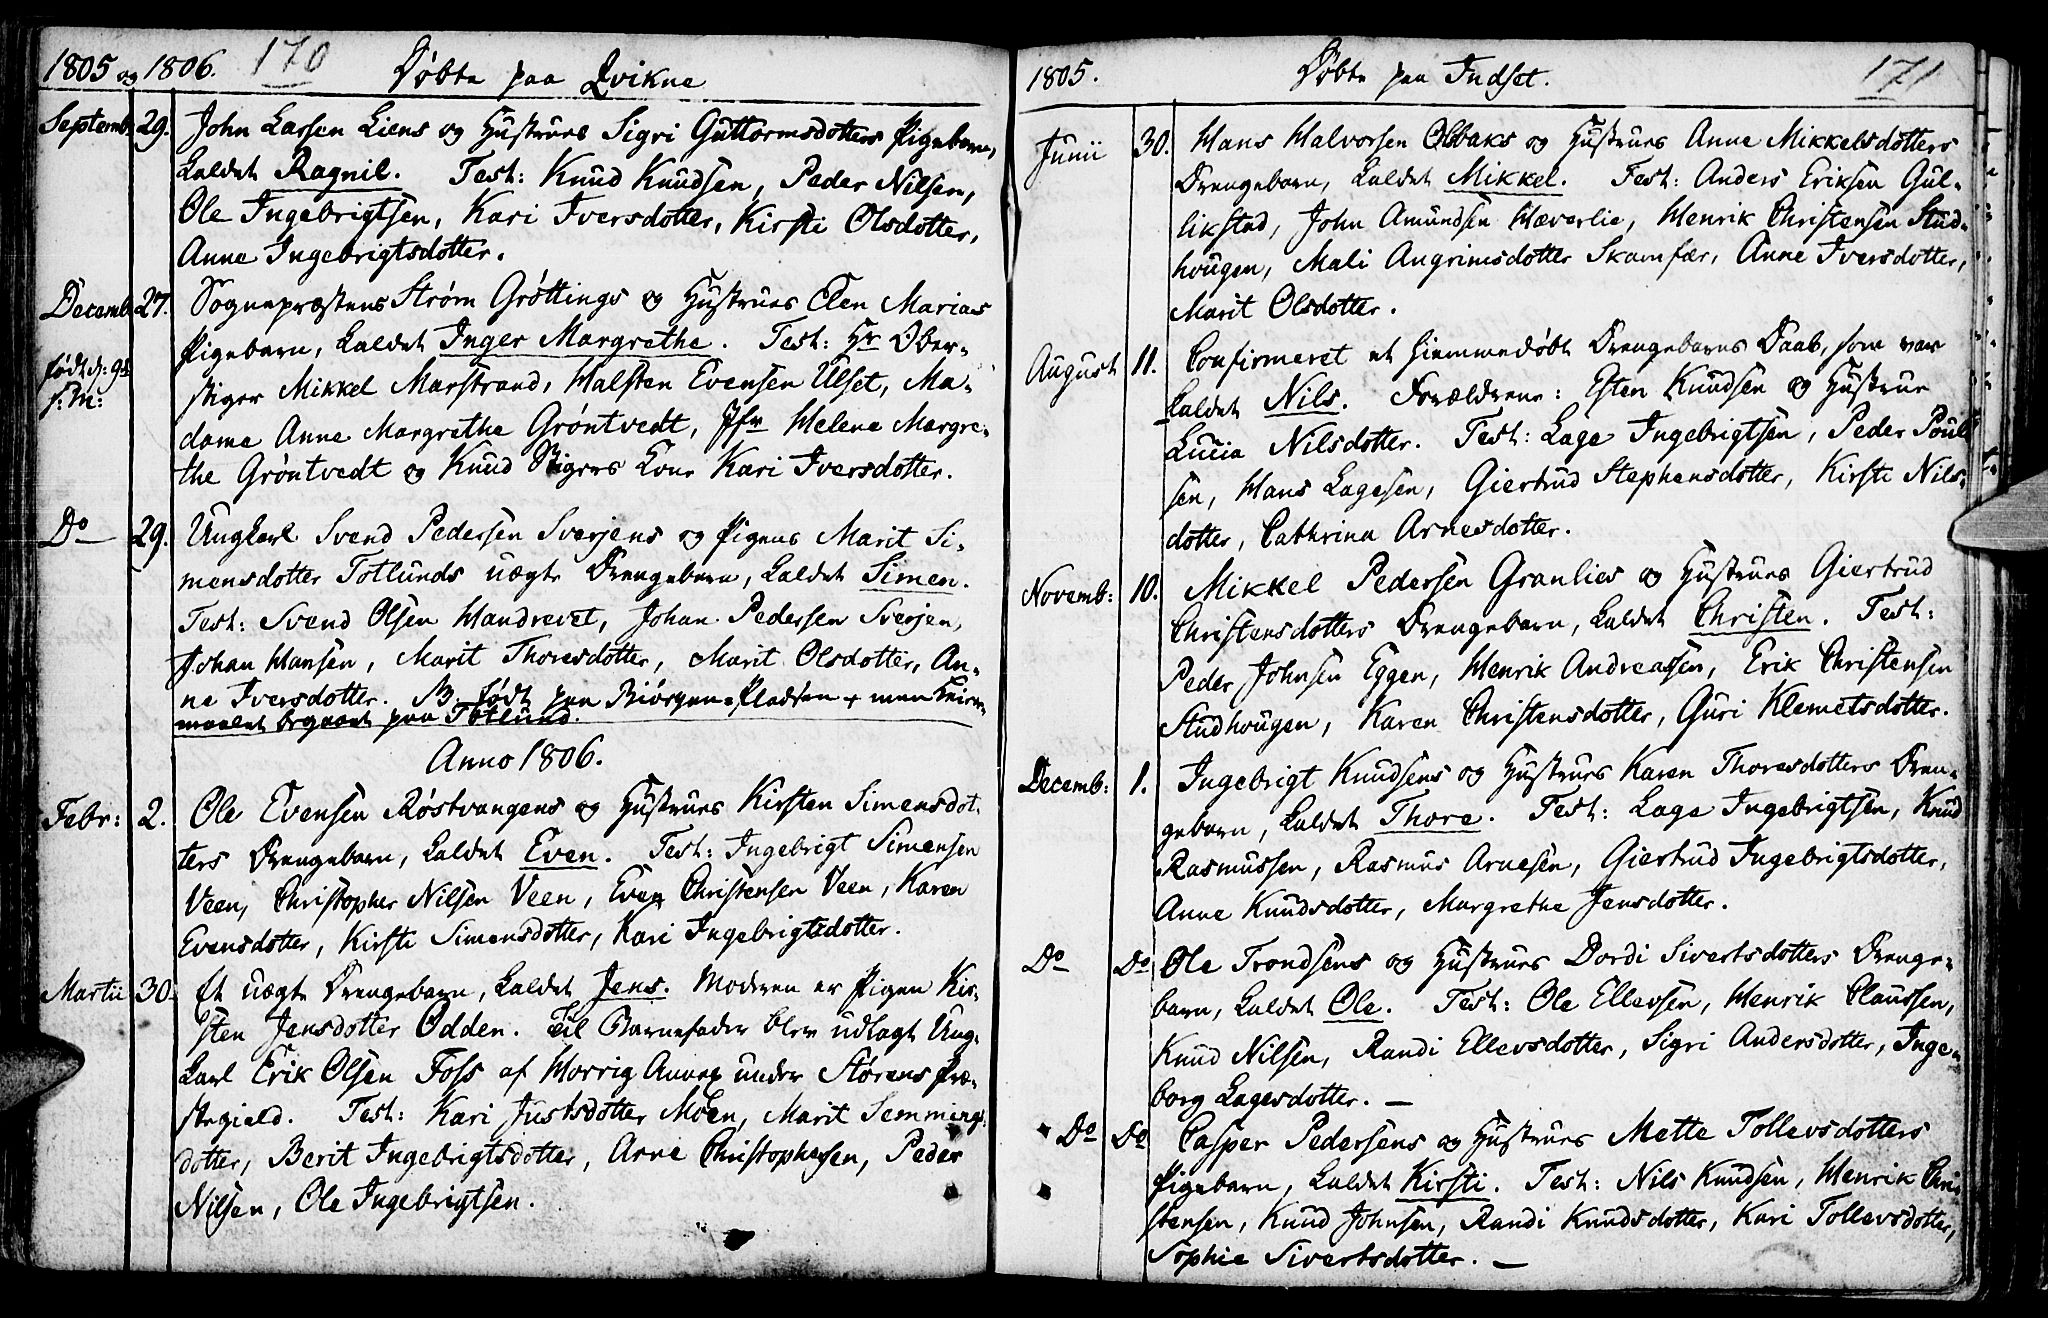 1805 og 1806. 170 Døbte paa Qvikne
Septemb: 29. John Lassen Liens og Hustrues Sigri Guttormsdotters Pigebarn,
kaldet Ragnil. Test: Knud Knudsen, Peder Nilsen,
Ole Ingebrigtsen, Kari Iversdotter, Kirsti Olsdotter,
Anne Ingebrigtsdotter.
Decemb: 27. Sognepræstens Strøm Grøttings og Hustrues Elen Marias
Pigebarn, kaldet Inger Margrethe. Test: Hr Ober-
født d: 9de
s: M:
stiger Mikkel Marstrand, Halsten Evensen Ulset, Ma-
dame Anne Margrethe Grøntvedt, Jfr Helene Margre-
the Grøntvedt og Knud Stigers Kone Kari Iversdotter.
Do 29. Ungkarl Svend Pedersen Sverjens og Pigens Marit Si-
mensdotter Totlunds uægte Drengebarn, kaldet Simen.
Test: Svend Olsen Handrevet, Johan Pedersen Sverjen,
Johan Hansen, Marit Thoresdotter, Marit Olsdotter, An-
ne Iversdotter. B. født paa Biørgan-Pladsen men Leier-
maalet begaaet paa Totlund.
Anno 1806.
Febr: 2. Ole Evensen Røstvangens og Hustrues Kirsten Simensdot-
ters Drengebarn, kaldet Even. Test: Ingebrigt Simensen
Veen, Christopher Nilsen Veen, Even Christensen Veen, Karen
Evensdotter, Kirsti Simensdotter, Kari Ingebrigtsdotter.
Martii 30. Et uægte Drengebarn, kaldet Jens. Moderen er Pigen Kir-
sten Jensdotter Odden. Til Barnefader blev udlagt Ung-
karl Erik Olsen Foss af Horrig Annex under Størens Præ-
stegield. Test: Kari Justsdotter Moen, Marit Semmings-
dotter, Berit Ingebrigtsdotter, Arne Christophersen, Peder
Nilsen, Ole Ingebrigtsen.
1805. Døbte paa Indset. 171
Junii 30. Hans Halvorsen Olsbaks og Hustrues Anne Mikkelsdotters
Drengebarn, kaldet Mikkel. Test: Anders Eriksen Gul-
likstad, John Amundsen Hæverlie, Henrik Christensen Stud-
hougen, Mali Angrimsdotter Skamfær, Anne Iversdotter,
Marit Olsdotter.
August 11. Confirmeret et hiemmedøbt Drengebarns Daab, som var
kaldet Nils. Forældrene: Esten Knudsen og Hustrue
Lucia Nilsdotter. Test: Lage Ingebrigtsen, Peder Pouls
sen, Hans Lagesen, Giertrud Stephensdotter, Kirsti Nils-
dotter, Cathrina Arnesdotter.
Novemb: 10. Mikkel Pedersen Granlies og Hustrues Giertrud
Christensdotters Drengebarn, kaldet Christen. Test:
Peder Johnsen Eggen, Henrik Andreassen, Erik Christensen
Studhougen, Karen Christensdotter, Guri Klemetsdotter.
Decemb: 1. Ingebrigt Knudsens og Hustrues Karen Thoresdotters Dren-
gebarn, kaldet Thore. Test: Lage Ingebrigtsen, Knud
Rasmussen, Rasmus Arnesen, Giertrud Ingebrigtsdotter,
Anne Knudsdotter, Margrethe Jensdotter.
Do Do Ole Trondsens og Hustrues Dordi Sivertsdotters Drenge-
barn, kaldet Ole. Test: Ole Ellevsen, Henrik Claussen,
Knud Nilsen, Randi Ellevsdotter, Sigri Andersdotter, Inge-
borg Lagesdotter. —
Do Do Casper Pedersens og Hustrues Mette Tollevsdotters
Pigebarn, kaldet Kirsti. Test: Nils Knudsen, Henrik Chri
stensen, Knud Johnsen, Randi Knudsdotter, Kari Tollevsdotter,
Sophie Sivertsdotter. —